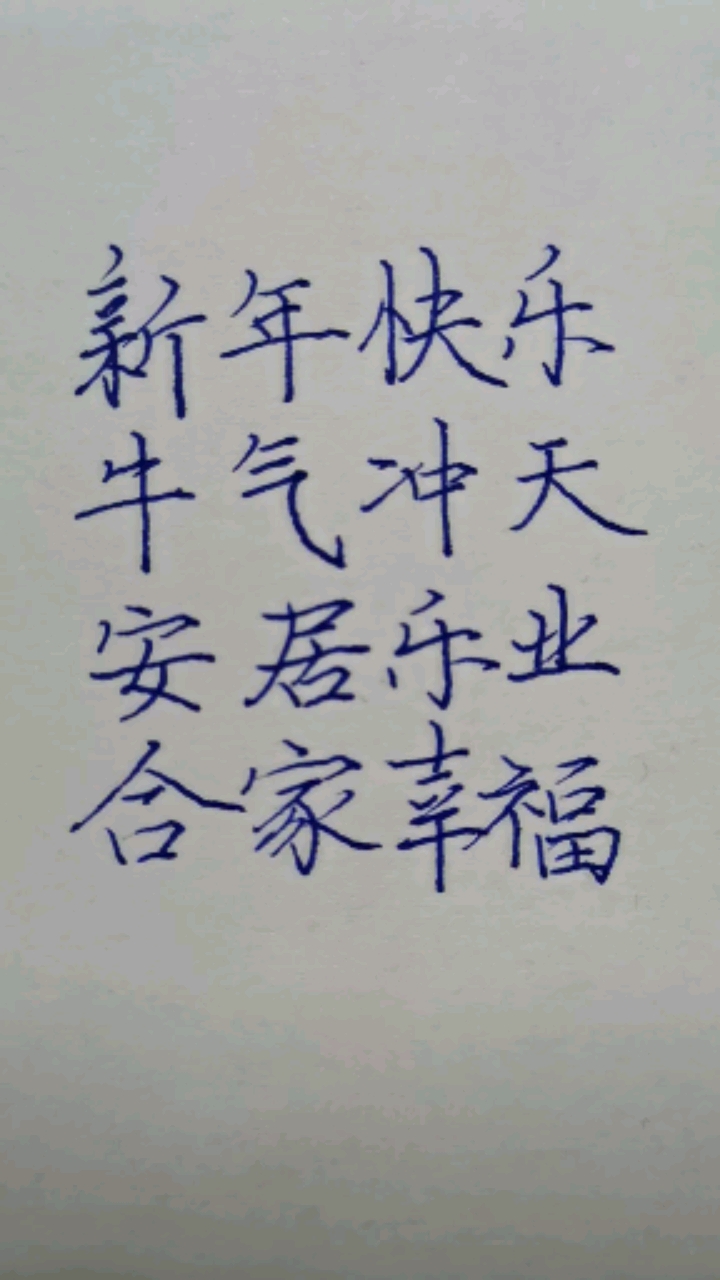 新年快乐
牛气冲天
安居乐业
合家幸福